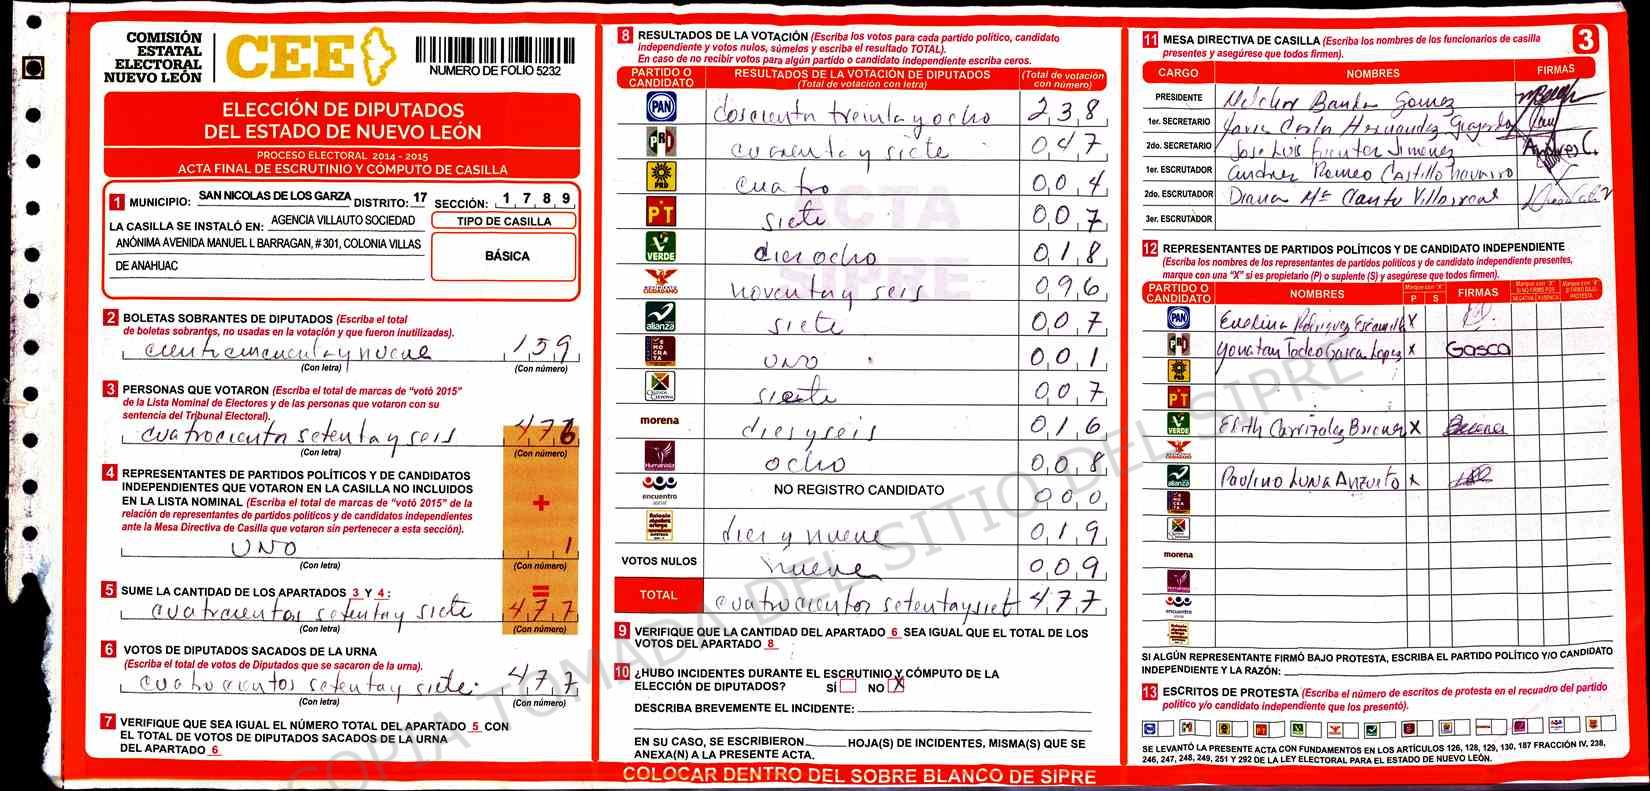 COMISIÓN
ESTATAL
ELECTORAL
NUEVO LEÓN
CEE
NUMERO DE FOLIO 5232
ELECCIÓN DE DIPUTADOS
DEL ESTADO DE NUEVO LEÓN
PROCESO ELECTORAL 2014 - 2015
ACTA FINAL DE ESCRUTINIO Y CÓMPUTO DE CASILLA
1 MUNICIPIO: SAN NICOLAS DE LOS GARZA DISTRITO: 17 SECCIÓN: 1 7 8 9
LA CASILLA SE INSTALÓ EN: AGENCIA VILLAUTO SOCIEDAD
ANÓNIMA AVENIDA MANUEL L BARRAGAN, # 301, COLONIA VILLAS
DE ANAHUAC
TIPO DE CASILLA
BÁSICA
2 BOLETAS SOBRANTES DE DIPUTADOS (Escriba el total
de boletas sobrantes, no usadas en la votación y que fueron inutilizadas).
159
(Con letra) (Con número)
3 PERSONAS QUE VOTARON (Escriba el total de marcas de “votó 2015”
de la Lista Nominal de Electores y de las personas que votaron con su
sentencia del Tribunal Electoral).
cuatrocientos setenta y seis 476
(Con letra) (Con número)
4 REPRESENTANTES DE PARTIDOS POLÍTICOS Y DE CANDIDATOS
INDEPENDIENTES QUE VOTARON EN LA CASILLA NO INCLUIDOS
EN LA LISTA NOMINAL (Escriba el total de marcas de “votó 2015” de la
relación de representantes de partidos políticos y de candidatos independientes
ante la Mesa Directiva de Casilla que votaron sin pertenecer a esta sección).
+
UNO 1
(Con letra) (Con número)
=
5 SUME LA CANTIDAD DE LOS APARTADOS 3 Y 4 :
cuatrocientos setenta y siete 477
(Con letra) (Con número)
6 VOTOS DE DIPUTADOS SACADOS DE LA URNA
(Escriba el total de votos de Diputados que se sacaron de la urna).
cuatrocientos setenta y siete. 477
(Con letra) (Con número)
7 VERIFIQUE QUE SEA IGUAL EL NÚMERO TOTAL DEL APARTADO 5 CON
EL TOTAL DE VOTOS DE DIPUTADOS SACADOS DE LA URNA
DEL APARTADO 6
8 RESULTADOS DE LA VOTACIÓN (Escriba los votos para cada partido político, candidato
independiente y votos nulos, súmelos y escriba el resultado TOTAL).
En caso de no recibir votos para algún partido o candidato independiente escriba ceros.
PARTIDO O CANDIDATO
RESULTADOS DE LA VOTACIÓN DE DIPUTADOS
(Total de votación con letra)
(Total de votación con número)
PAN doscientos treinta y ocho 238
PRD cuarenta y siete 047
PRD cuatro 004
PT siete 007
VERDE dieciocho 018
noventa y seis 096
alianza siete 007
UNO 001
siete 007
morena dies y seis 016
Humanista ocho 008
encuentro social NO REGISTRO CANDIDATO 000
dies y nueve 019
VOTOS NULOS nueve 009
TOTAL cuatrocientos setenta y siete 477
9 VERIFIQUE QUE LA CANTIDAD DEL APARTADO 6 SEA IGUAL QUE EL TOTAL DE LOS
VOTOS DEL APARTADO 8
10 ¿HUBO INCIDENTES DURANTE EL ESCRUTINIO Y CÓMPUTO DE LA
ELECCIÓN DE DIPUTADOS? SÍ NO X
DESCRIBA BREVEMENTE EL INCIDENTE:
EN SU CASO, SE ESCRIBIERON HOJA(S) DE INCIDENTES, MISMA(S) QUE SE
ANEXA(N) A LA PRESENTE ACTA.
COLOCAR DENTRO DEL SOBRE BLANCO DE SIPRE
ACTA
SIPRE
COPIA TOMADA DEL SITIO DEL SIPRE
11 MESA DIRECTIVA DE CASILLA (Escriba los nombres de los funcionarios de casilla
presentes y asegúrese que todos firmen).
3
CARGO NOMBRES FIRMAS
PRESIDENTE Gomez
1er. SECRETARIO Hernandez
2do. SECRETARIO Jose Luis Jimenez Andres C.
1er. ESCRUTADOR Andres Romeo Castillo Navarro
2do. ESCRUTADOR Diana Mª Cantu Villarreal
3er. ESCRUTADOR
12 REPRESENTANTES DE PARTIDOS POLÍTICOS Y DE CANDIDATO INDEPENDIENTE
(Escriba los nombres de los representantes de partidos políticos y de candidato independiente presentes,
marque con una “X” si es propietario (P) o suplente (S) y asegúrese que todos firmen).
PARTIDO O CANDIDATO
NOMBRES
Marque con “X”
P S
FIRMAS
PAN Evelina Rodriguez Escamilla X
Yonatan Gasca Lopez x Gasca
PRD
PT
VERDE Edith Carrizales X
alianza Paulino Luna x
morena
encuentro social
SI ALGÚN REPRESENTANTE FIRMÓ BAJO PROTESTA, ESCRIBA EL PARTIDO POLÍTICO Y/O CANDIDATO
INDEPENDIENTE Y LA RAZÓN:
13 ESCRITOS DE PROTESTA (Escriba el número de escritos de protesta en el recuadro del partido
político y/o candidato independiente que los presentó).
SE LEVANTÓ LA PRESENTE ACTA CON FUNDAMENTOS EN LOS ARTÍCULOS 126, 128, 129, 130, 187 FRACCIÓN IV, 238,
246, 247, 248, 249, 251 Y 292 DE LA LEY ELECTORAL PARA EL ESTADO DE NUEVO LEÓN.